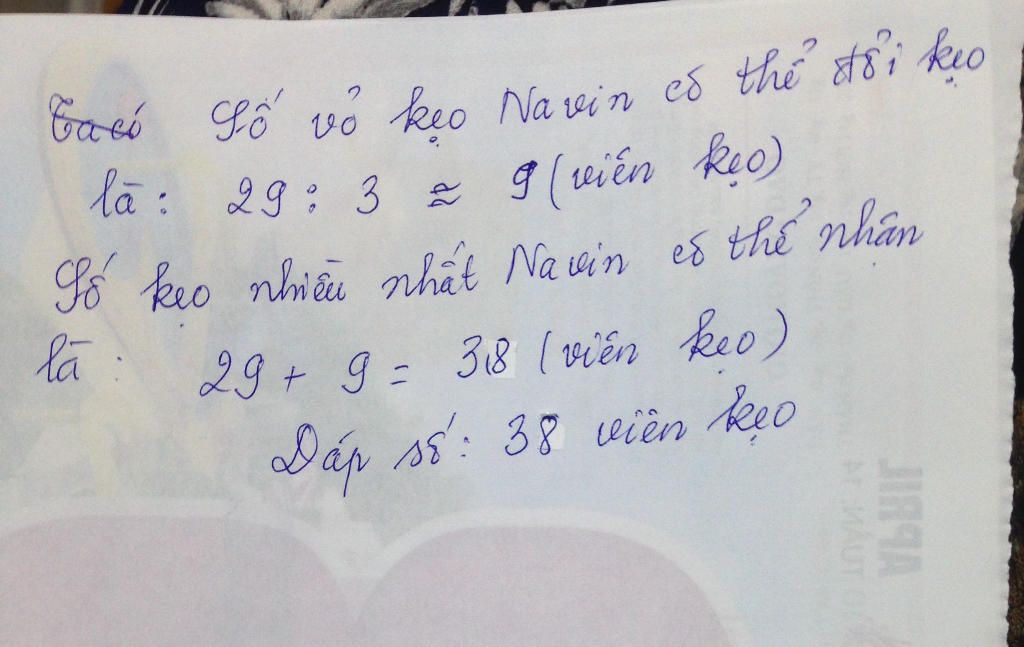 Ta có Số vỏ kẹo Navin có thể đổi kẹo
là: 29 : 3 ≈ 9 (viên kẹo)
Số kẹo nhiều nhất Navin có thể nhận
là: 29 + 9 = 38 (viên kẹo)
Đáp số: 38 viên kẹo
APRIL
TUẦN 14